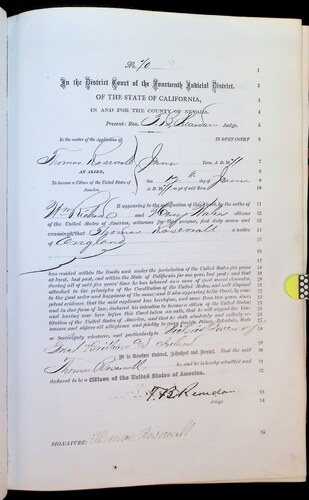 No. 70
In the District Court of the Fourteenth Judicial District,
OF THE STATE OF CALIFORNIA,
IN AND FOR THE COUNTY OF NEVADA.
Present: Hon. T. B. Reardan Judge.
In the matter of the Application of
IN OPEN COURT
Thomas Rosewall
June Term A. D. 18
AN ALIEN,
this 12th day of June
To become a Citizen of the United States of
America.
A. D. 18
It appearing to the satisfaction of this Court, by the
Wm Richards and citizens
of the United States of America, witnesses for that purpose, first duly sworn and
examined that Thomas Rosewall a native
of England
has resided within the limits and under the jurisdiction of the United States five years
at least, last past, and within the State of California for one year, last past; and that
during all of said five years' time he has behaved as a man of good moral character,
attached to the principles of the Constitution of the United States, and well disposed
to the good order and happiness of the same; and it also appearing to the Court, by com-
petent evidence, that the said applicant has heretofore, and more than two years since,
and in due form of law, declared his intention to become a citizen of the United States
and having now here before this Court taken an oath, that he will support the Con-
stitution of the United States of America, and that he doth absolutely and entirely re-
nounce and abjure all allegiance and fidelity to every foreign Prince, Potentate, State
or Sovereignty whatever, and particularly to the Queen of
Great Britain & Ireland
It is therefore Ordered, Adjudged and Decreed, That the said
Thomas Rosewall be, and he is hereby admitted and
declared to be a Citizen of the United States of America.
T. B. Reardan
SIGNATURE: Thomas Rosewall